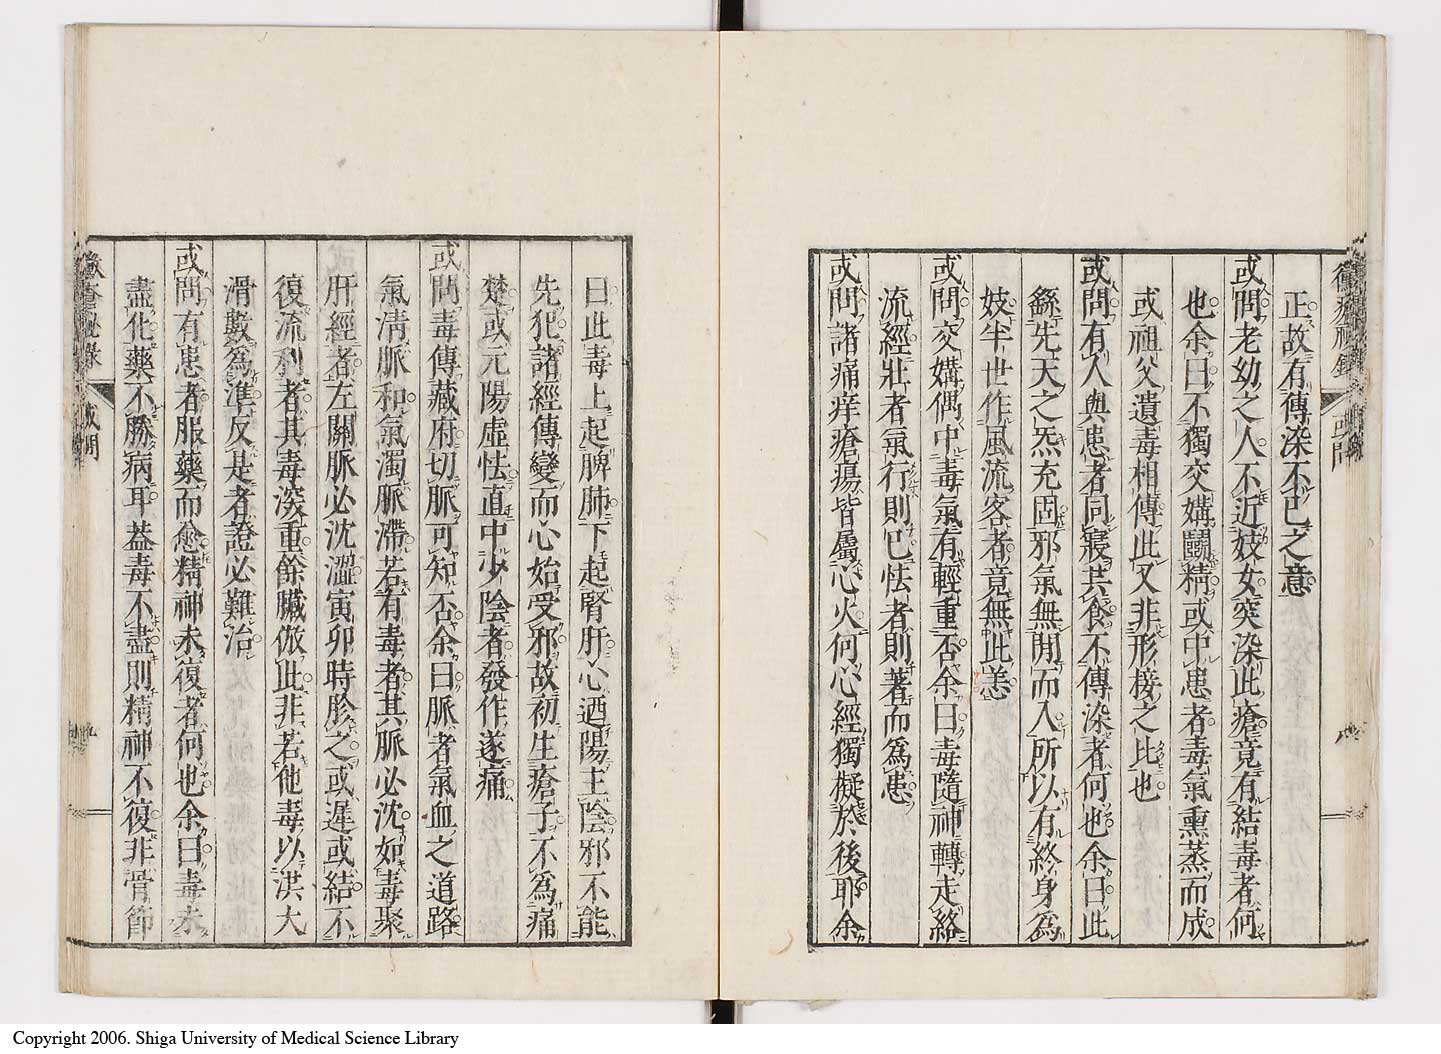 黴瘡秘錄
或問
八
正故有傳染不已之意
或問老幼之人不近妓女突染此瘡竟有結毒者何
也余曰不獨交媾鬬精或中患者毒氣熏蒸而成
或祖父遺毒相傳此又非形接之比也
或問有人與患者同寢共食不傳染者何也余曰此
繇先天之炁充固邪氣無閒而入所以有終身為
妓半世作風流客者竟無此恙
或問交媾偶中毒氣有輕重否余曰毒隨神轉走絡
流經壯者氣行則已怯者則著而為患
或問諸痛痒瘡瘍皆屬心火何心經獨擬於後耶余
曰此毒上起脾肺下起腎肝心迺陽主陰邪不能
先犯諸經傳變而心始受邪故初生瘡子不為痛
楚或元陽虛怯直中少陰者發作遂痛
或問毒傳藏府切脈可知否余曰脈者氣血之道路
氣淸脈和氣濁脈滯若有毒者其脈必沈如毒聚
肝經者左關脈必沈濇寅卯時胗之或遲或結不
復流利者其毒深重餘臟倣此非若他毒以洪大
滑數為準反是者證必難治
或問有患者服藥而愈精神未復者何也余曰毒未
盡化藥不勝病耳葢毒不盡則精神不復非骨節
黴瘡秘錄
或問
九
Copyright 2006. Shiga University of Medical Science Library